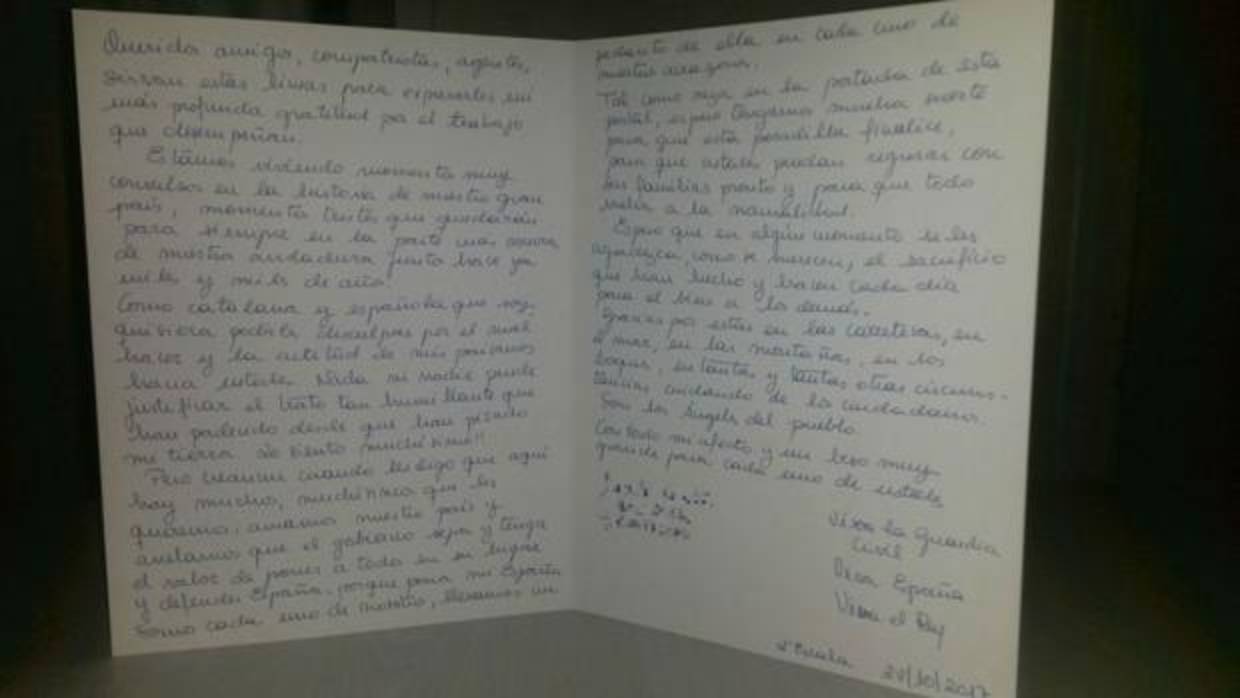 Queridos amigos, compatriotas, agentes,
sirvan estas líneas para expresarles mi
más profunda gratitud por el trabajo
que desempeñan.
Estamos viviendo momentos muy
convulsos en la historia de nuestro gran
país, momentos tristes que quedarán
para siempre en la parte más oscura
de nuestra andadura junta hace ya
miles y miles de años.
Como catalana y española que soy,
quisiera pedirles disculpas por el mal
hacer y la actitud de mis paisanos
hacia ustedes. Nada ni nadie puede
justificar el trato tan humillante que
han padecido desde que han pisado
mi tierra. Lo siento muchísimo!!
Pero créanme cuando les digo que aquí
hay muchos, muchísimos que les
queremos, amamos nuestro país y
anhelamos que el gobierno sepa y tenga
el valor de poner a todos en su lugar
y defender España, porque para mi España
somos cada uno de nosotros, llevamos un
pedacito de ella en cada uno de
nuestros corazones.
Tal como reza en la portada de esta
postal, espero tengamos mucha suerte
para que esta pesadilla finalice,
para que ustedes puedan regresar con
sus familias pronto y para que todo
vuelva a la normalidad.
Espero que en algún momento se les
agradezca, como se merecen, el sacrificio
que han hecho y hacen cada día
para el bien a los demás.
Gracias por estar en las carreteras, en
el mar, en las montañas, en los
bosques, en tantas y tantas otras circuns-
tancias cuidando de los ciudadanos.
Son los Ángeles del pueblo.
Con todo mi afecto y un beso muy
grande para cada uno de ustedes
Viva la Guardia
Civil
Viva España
Viva el Rey
28/10/2017